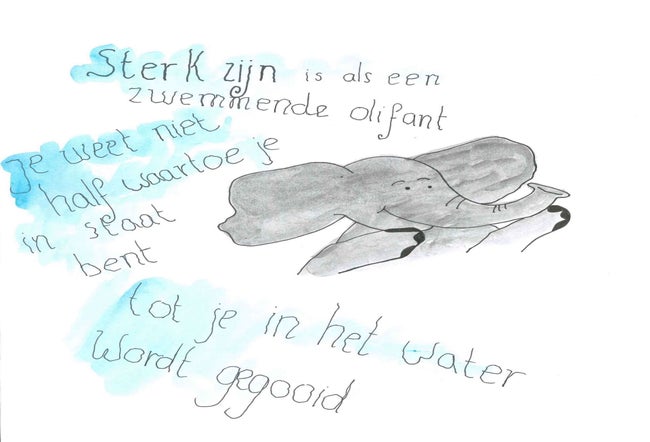 Sterk zijn is als een
zwemmende olifant
je weet niet
half waartoe je
in staat
bent
tot je in het water
wordt gegooid